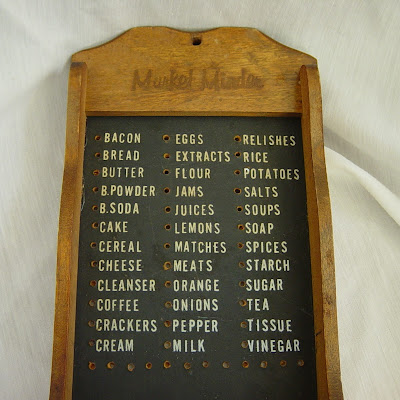 Market Minder
BACON EGGS RELISHES
BREAD EXTRACTS RICE
BUTTER FLOUR POTATOES
B.POWDER JAMS SALTS
B.SODA JUICES SOUPS
CAKE LEMONS SOAP
CEREAL MATCHES SPICES
CHEESE MEATS STARCH
CLEANSER ORANGE SUGAR
COFFEE ONIONS TEA
CRACKERS PEPPER TISSUE
CREAM MILK VINEGAR